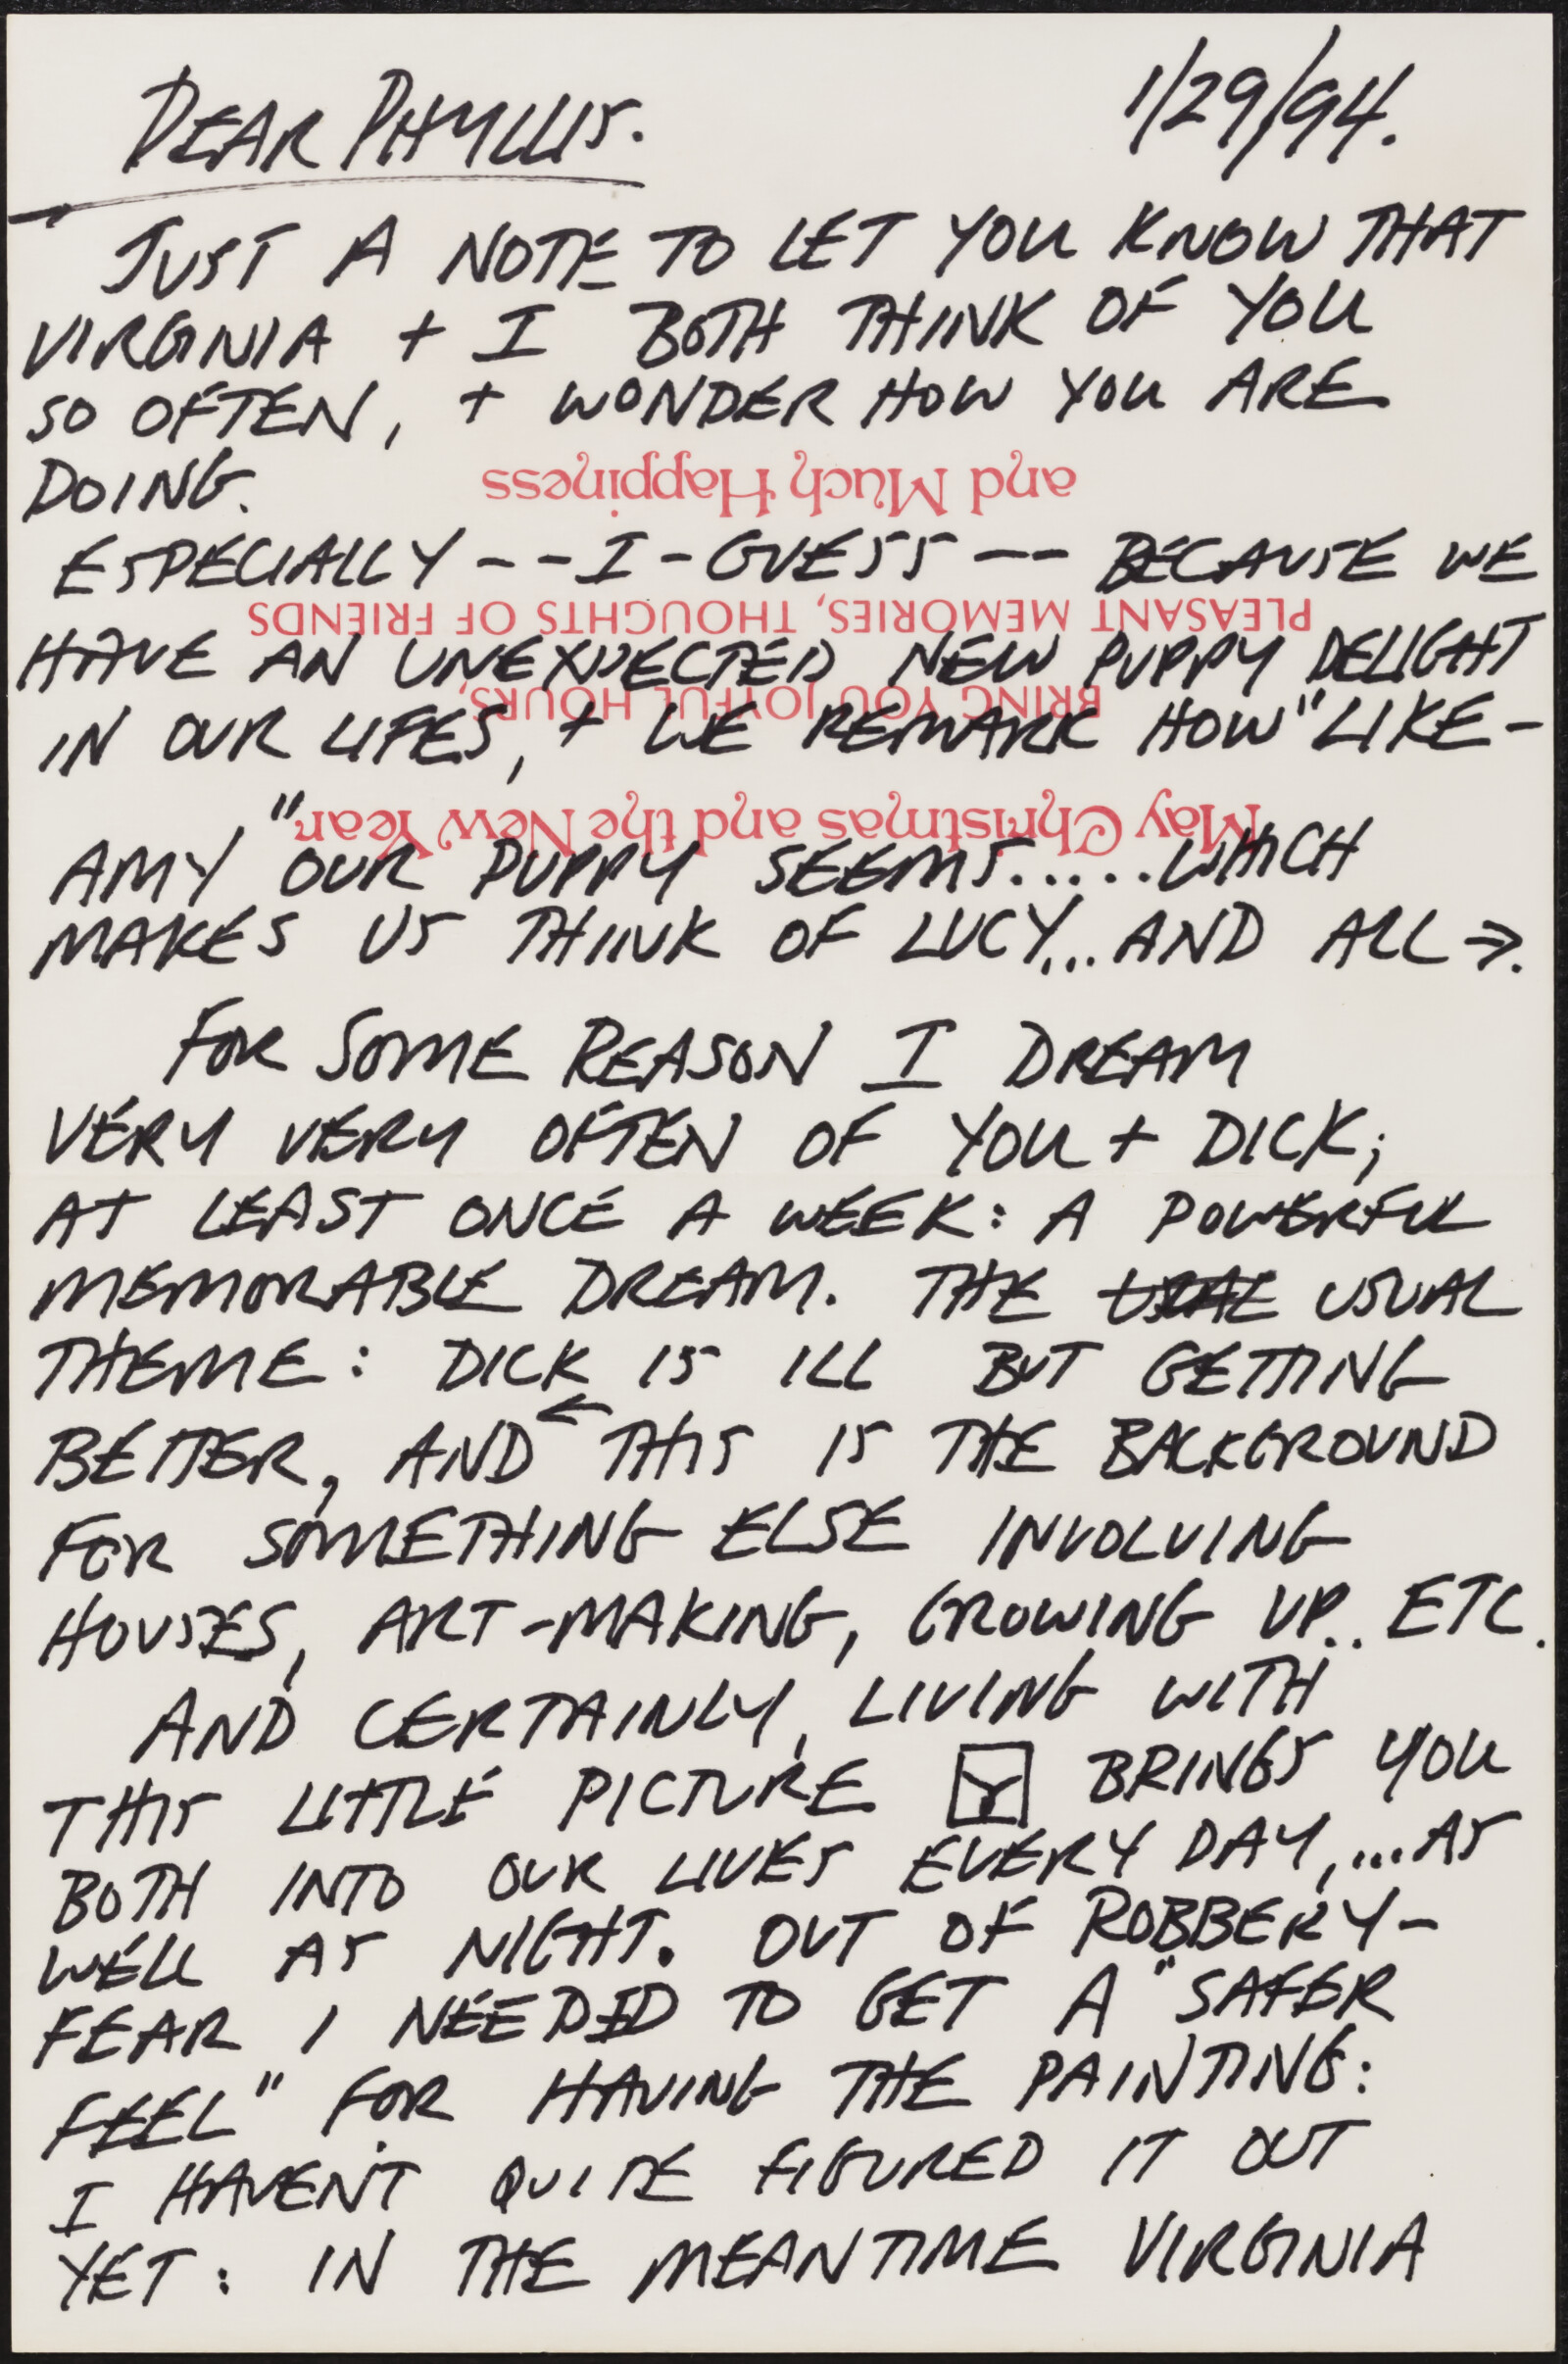 1/29/94.
DEAR PHYLLIS.
JUST A NOTE TO LET YOU KNOW THAT
VIRGINIA + I BOTH THINK OF YOU
SO OFTEN, + WONDER HOW YOU ARE
DOING.
ESPECIALLY - - I - GUESS -- BECAUSE WE
HAVE AN UNEXPECTED NEW PUPPY DELIGHT
IN OUR LIFES, + WE REMARK HOW "LIKE-
AMY" OUR PUPPY SEEMS.....WHICH
MAKES US THINK OF LUCY... AND ALL ⇒.
FOR SOME REASON I DREAM
VERY VERY OFTEN OF YOU + DICK;
AT LEAST ONCE A WEEK: A POWERFUL
MEMORABLE DREAM. THE USUAL
THEME: DICK IS ILL BUT GETTING
BETTER, AND ← THIS IS THE BACKGROUND
FOR SOMETHING ELSE INVOLVING
HOUSES, ART-MAKING, GROWING UP.. ETC.
AND CERTAINLY, LIVING WITH
THIS LITTLE PICTURE BRINGS YOU
BOTH INTO OUR LIVES EVERY DAY,...AS
WELL AS NIGHT. OUT OF ROBBERY-
FEAR I NEEDED TO GET A "SAFER
FEEL" FOR HAVING THE PAINTING:
I HAVEN'T QUITE FIGURED IT OUT
YET: IN THE MEANTIME VIRGINIA
May Christmas and the New Year
BRING YOU JOYFUL HOURS,
PLEASANT MEMORIES, THOUGHTS OF FRIENDS
and Much Happiness